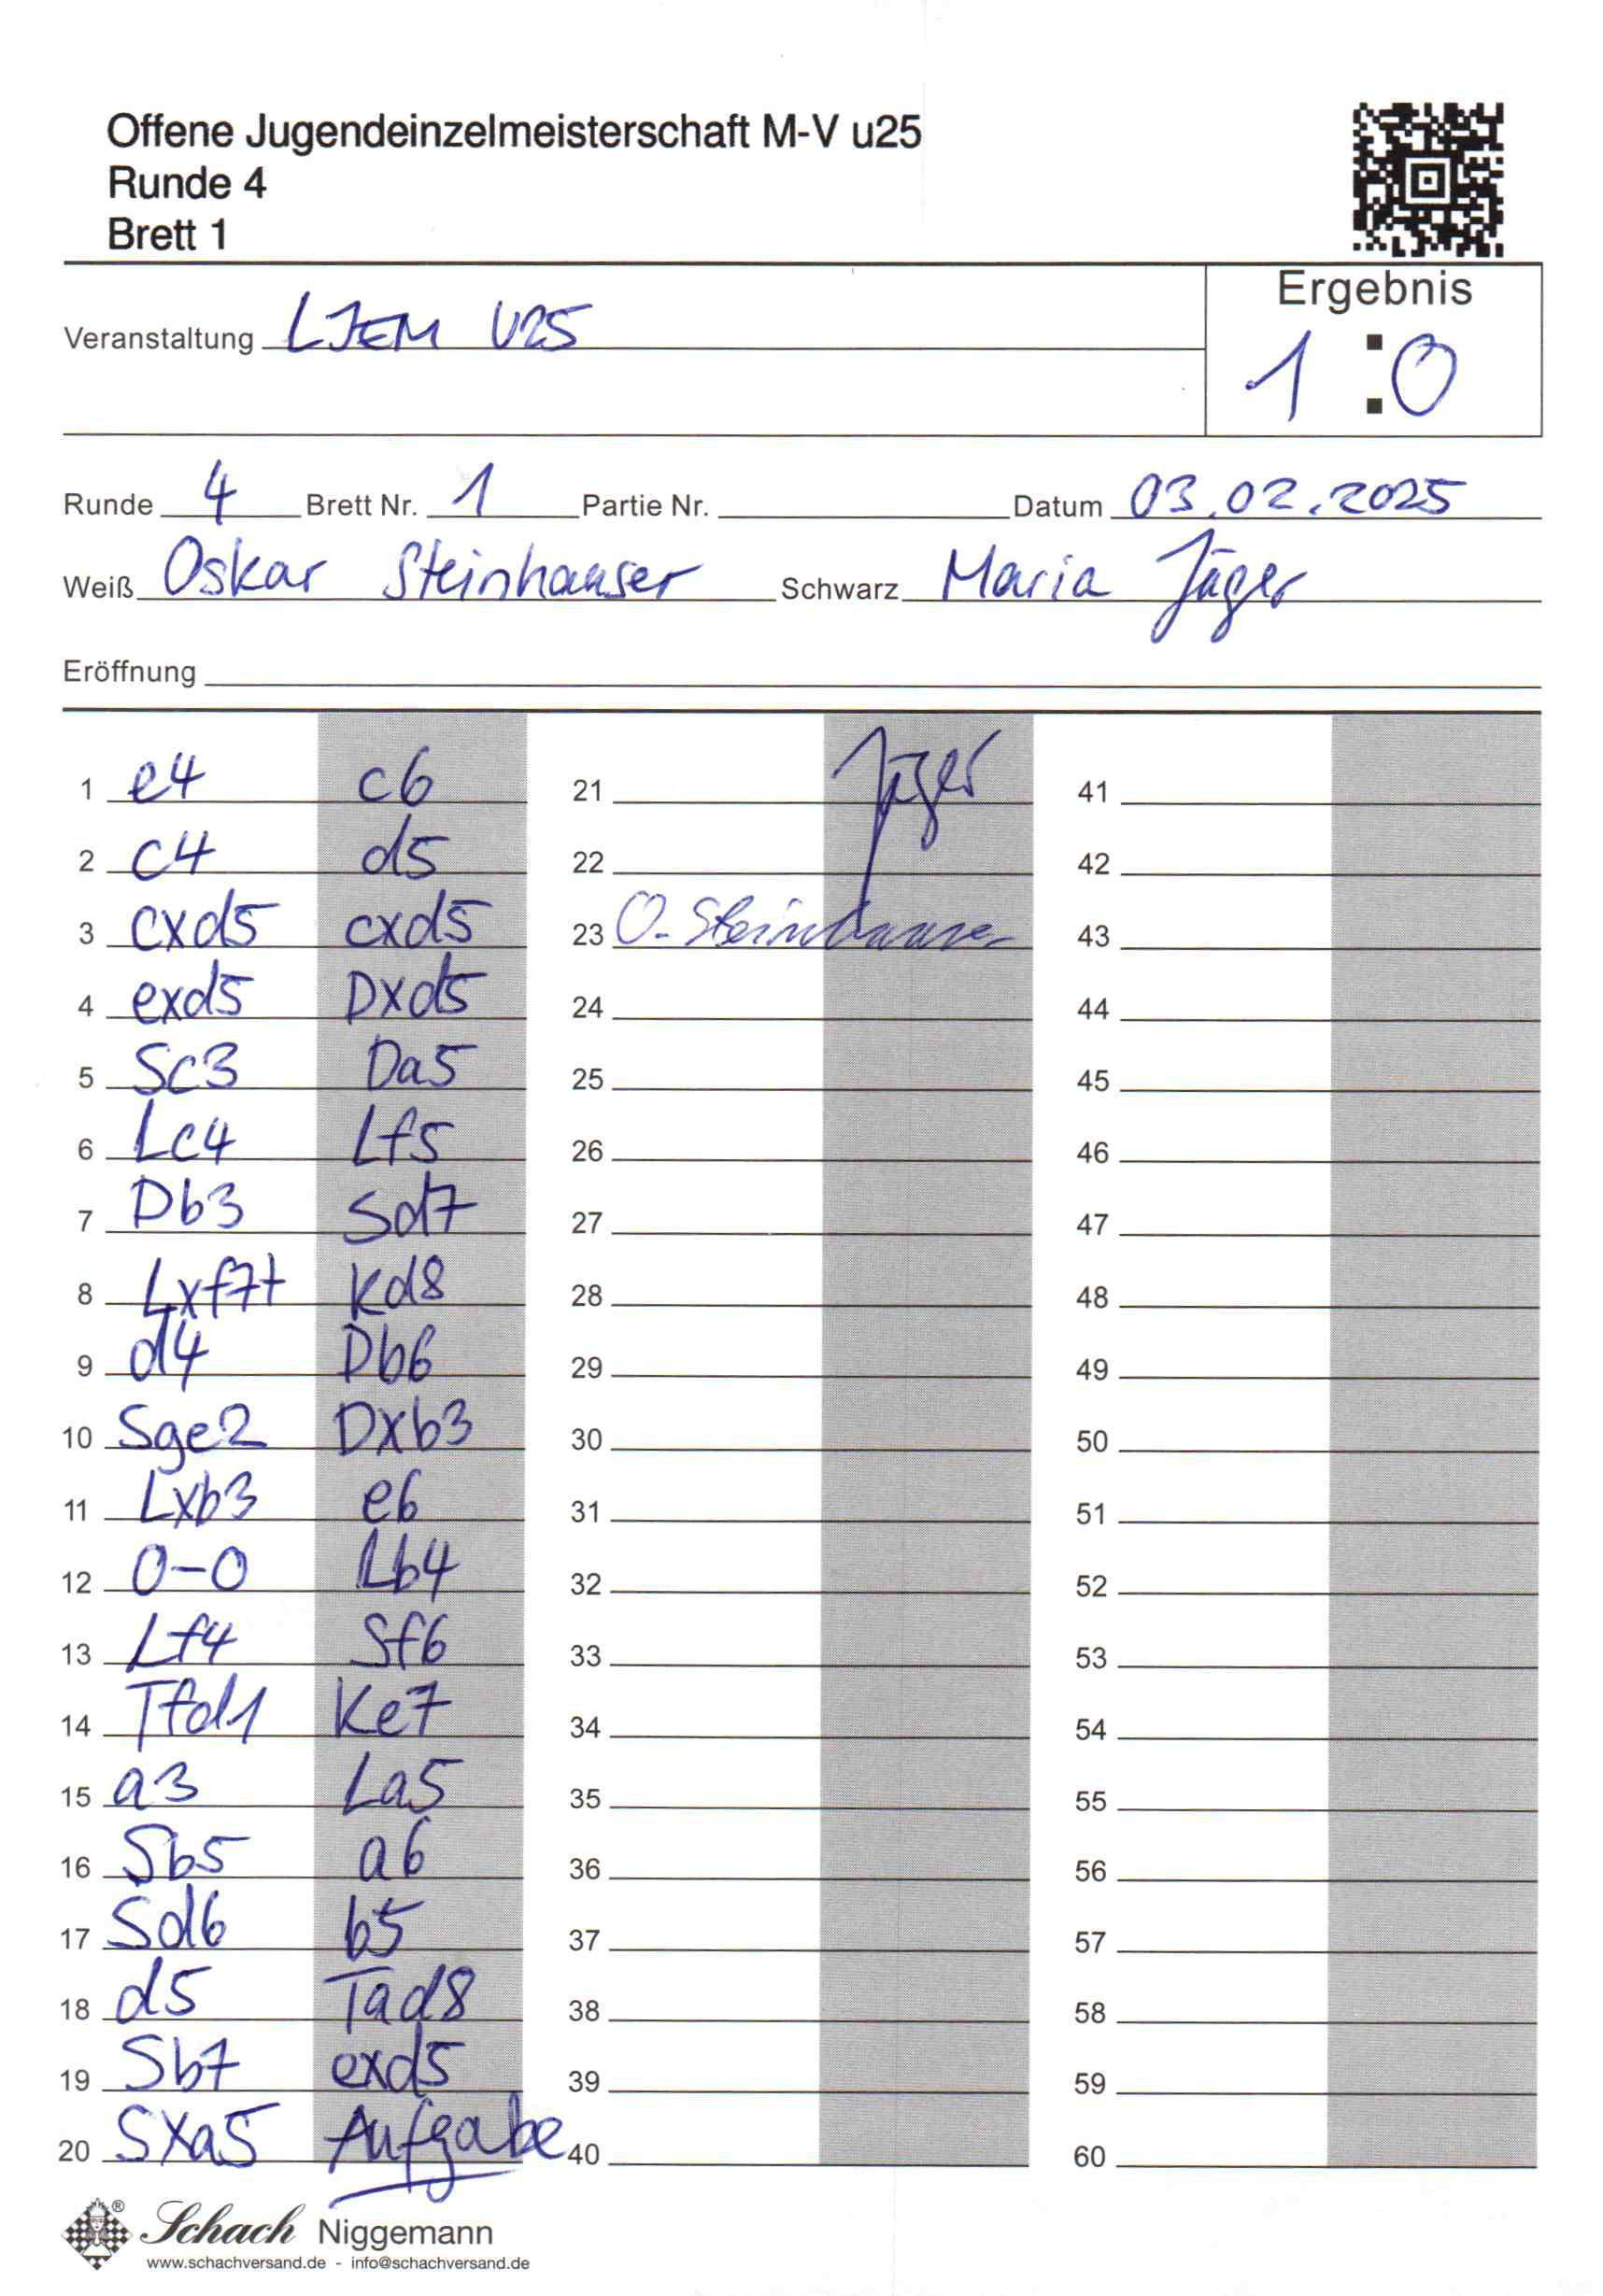 Offene Jugendeinzelmeisterschaft M-V u25
Runde 4
Brett 1
Ergebnis
Veranstaltung LJEM U25
1 : 0
Runde 4 Brett Nr. 1 Partie Nr. Datum 03.02.2025
Weiß Oskar Steinhauser Schwarz Maria Jäger
Eröffnung
1 e4 c6 21 Jäger 41
2 c4 d5 22 42
3 cxd5 cxd5 23 O. Steinhauser 43
4 exd5 Dxd5 24 44
5 Sc3 Da5 25 45
6 Lc4 Lf5 26 46
7 Db3 Sd7 27 47
8 Lxf7+ Kd8 28 48
9 d4 Db6 29 49
10 Sge2 Dxb3 30 50
11 Lxb3 e6 31 51
12 0-0 Lb4 32 52
13 Lf4 Sf6 33 53
14 Tfd1 Ke7 34 54
15 a3 La5 35 55
16 Sb5 a6 36 56
17 Sd6 b5 37 57
18 d5 Tad8 38 58
19 Sb7 exd5 39 59
20 Sxa5 Aufgabe 40 60
® Schach Niggemann
www.schachversand.de - info@schachversand.de